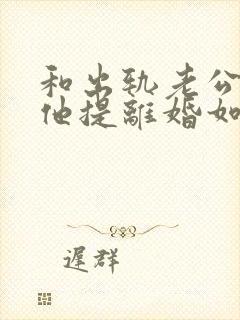 和出轨老公
他提離婚如
遲群